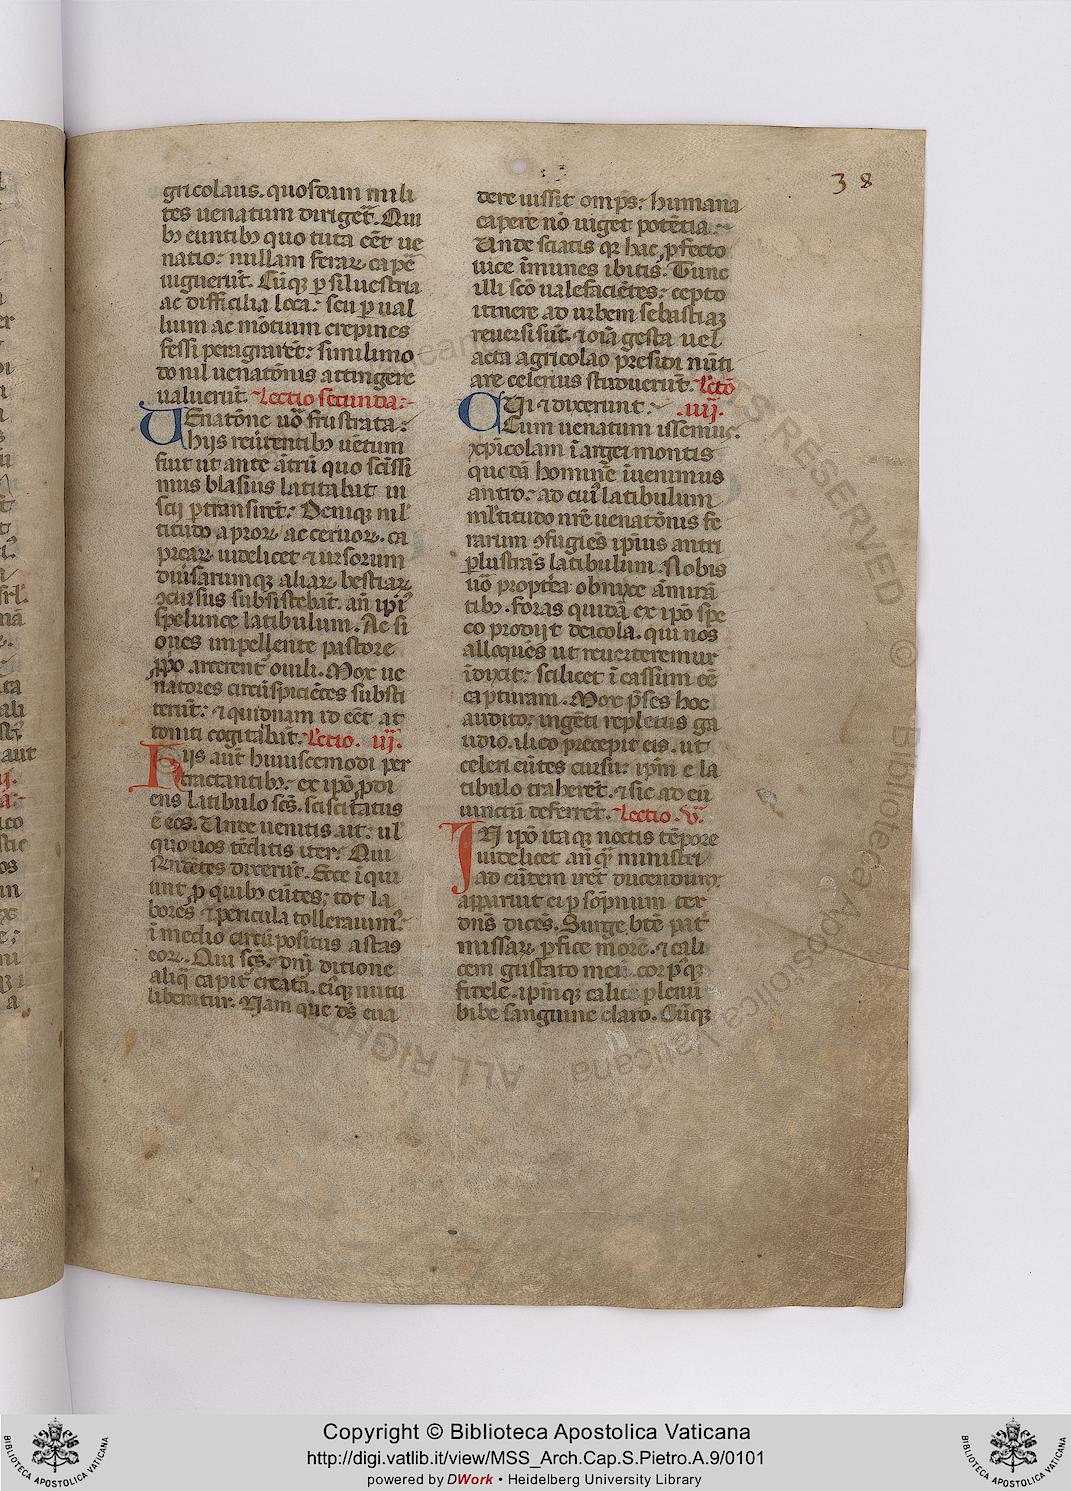 38
gricolaus. quosdam mili
tes uenatum dirigeret. Qui
bꝫ euntibꝫ quo tuta eēt ue
natio: nullam feraꝝ capē
uiguerūt. Cūqꝫ ꝑ siluestria
ac difficilia loca: seu ꝑ ual
lium ac mōtium crepines
fessi peragrarēt: similimo
do nil uenatōnis attingere
ualuerūt. Lectio secunda:
UEnatōne uō frustrata:
hijs reūtentibꝫ uētum
fuit ut ante ātrū quo scīssi
mus blasius latitabat in
scij ꝑtransirēt: Deniqꝫ ml'
titudo aproꝝ ac ceruoꝝ. ca
preaꝝ uidelicet ⁊ ursorum
diūsarumqꝫ aliaꝝ bestiaꝝ
ꝯcursus subsistebāt. añ ip̄i'
spelunce latibulum. Ac si
oues impellente pastore
ꝓp̄o arcerent ouili. Mox ue
natores circūspiciētes substi
terūt: ⁊ quidnam id eēt at
toniti cogitabāt. Lectio. iij.
Hijs aūt huiuscemodi per
tractantibꝫ: ex ip̄o ꝓdi
ens latibulo scs̄. sciscitatus
ē eos. Unde uenitis ait: ul'
quo uos tēditis iter: Qui
rn̄dētes dixerūt. Ecce ī qui
unt ꝑ quibꝫ eūtes: tot la
bores ⁊ pericula tollerauim':
ī medio circūpositus astas
eoꝝ. Qui scs̄. dn̄j ditione
aliq̄ capit creata. eiqꝫ nutu
liberatur. Nam que ds̄ eua
dere iussit omp̄s: humana
capere nō uiget potētia:
Unde sciatis qꝛ hac ꝓfecto
uice īmunes ibitis. Tunc
illi scō ualefaciētes: cepto
itinere ad urbem sebastiaꝫ
reuersi sūt. ⁊ oīa gesta uel
acta agricolao presidi nūti
are celerius studuerūt. Lectō
QUi ⁊ dixerunt: .iiij.
Cum uenatum issemus.
xp̄icolam ī argei montis
quedā hominē īuenimus
antro: ad cui' latibulum
ml'titudo nr̄e uenatōnis fe
rarum ꝯfugiēs ip̄ius antri
plustrās latibulum. Nobis
uō proptēa obnixe āmirā
tibꝫ. foras quidā ex ip̄o spe
co prodijt deicola. qui nos
alloquēs ut reuerteremur
īdixit: scilicet ī cassum eē
capturam. Mox p̄ses hoc
audito: ingēti repletus ga
udio. ilico precepit eis. ut
celeri eūtes cursu: ip̄m e la
tibulo traherēt. ⁊ sic ad eū
uinctū deferrēt. Lectio. v.
IN ip̄o itaqꝫ noctis tēpore
uidelicet añ q̄ ministri
ad eūtem irēt ducendum:
apparuit ei ꝑ sōpnum ter
dns̄ dicēs. Surge bt̄e pat'
missaꝝ ꝑfice morē. ⁊ cali
cem gustato meū corpꝰqꝫ
fidele. ip̄mqꝫ calicē plenū
bibe sanguine claro. Cūqꝫ
Copyright © Biblioteca Apostolica Vaticana
http://digi.vatlib.it/view/MSS_Arch.Cap.S.Pietro.A.9/0101
powered by DWork • Heidelberg University Library
BIBLIOTECA APOSTOLICA VATICANA
BIBLIOTECA APOSTOLICA VATICANA